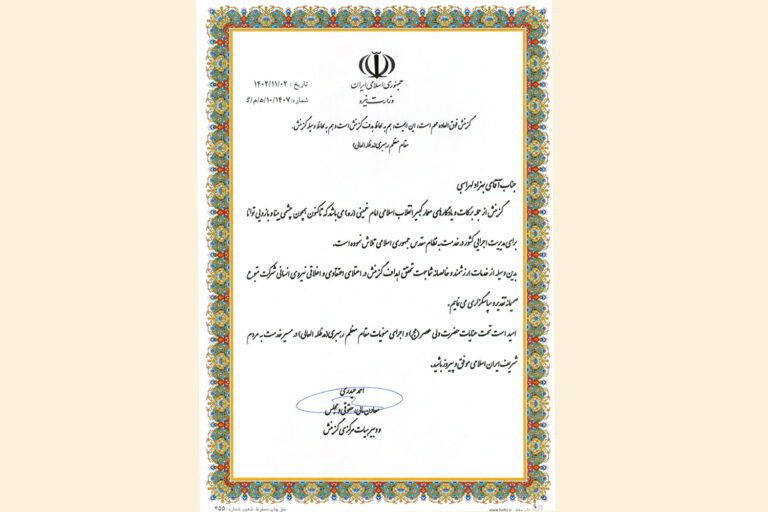 جمهوری اسلامی ایران
وزارت نیرو
تاریخ : ۱۴۰۲/۱۱/۰۲
شماره: ۱۰/۱۴۰۷/ه/م/گ
گزینش فوق العاده مهم است؛ این اهمیت، هم به لحاظ هدف گزینش است و هم به لحاظ وسیله گزینش.
مقام معظم رهبری(مدظله العالی)
جناب آقای بهزاد لهراسبی
گزینش از جمله برکات و یادگارهای معمار کبیر انقلاب اسلامی امام خمینی (ره) می باشد که تاکنون همچون چشمی بینا و بازویی توانا
برای مدیریت اجرایی کشور در خدمت به نظام مقدس جمهوری اسلامی تلاش نموده است.
بدین وسیله از خدمات ارزشمند و خالصانه شما جهت تحقق اهداف گزینش در اعتلای اعتقادی و اخلاقی نیروی انسانی شرکت متبوع
صمیمانه تقدیر و سپاسگزاری می نمایم.
امید است تحت عنایات حضرت ولی عصر (عج) و اجرای منویات مقام معظم رهبری(مدظله العالی) در مسیر خدمت به مردم
شریف ایران اسلامی موفق و پیروز باشید.
احمد حیدری
معاون مالی، حقوقی و مجلس
و دبیر هیات مرکزی گزینش
حق چاپ محفوظ